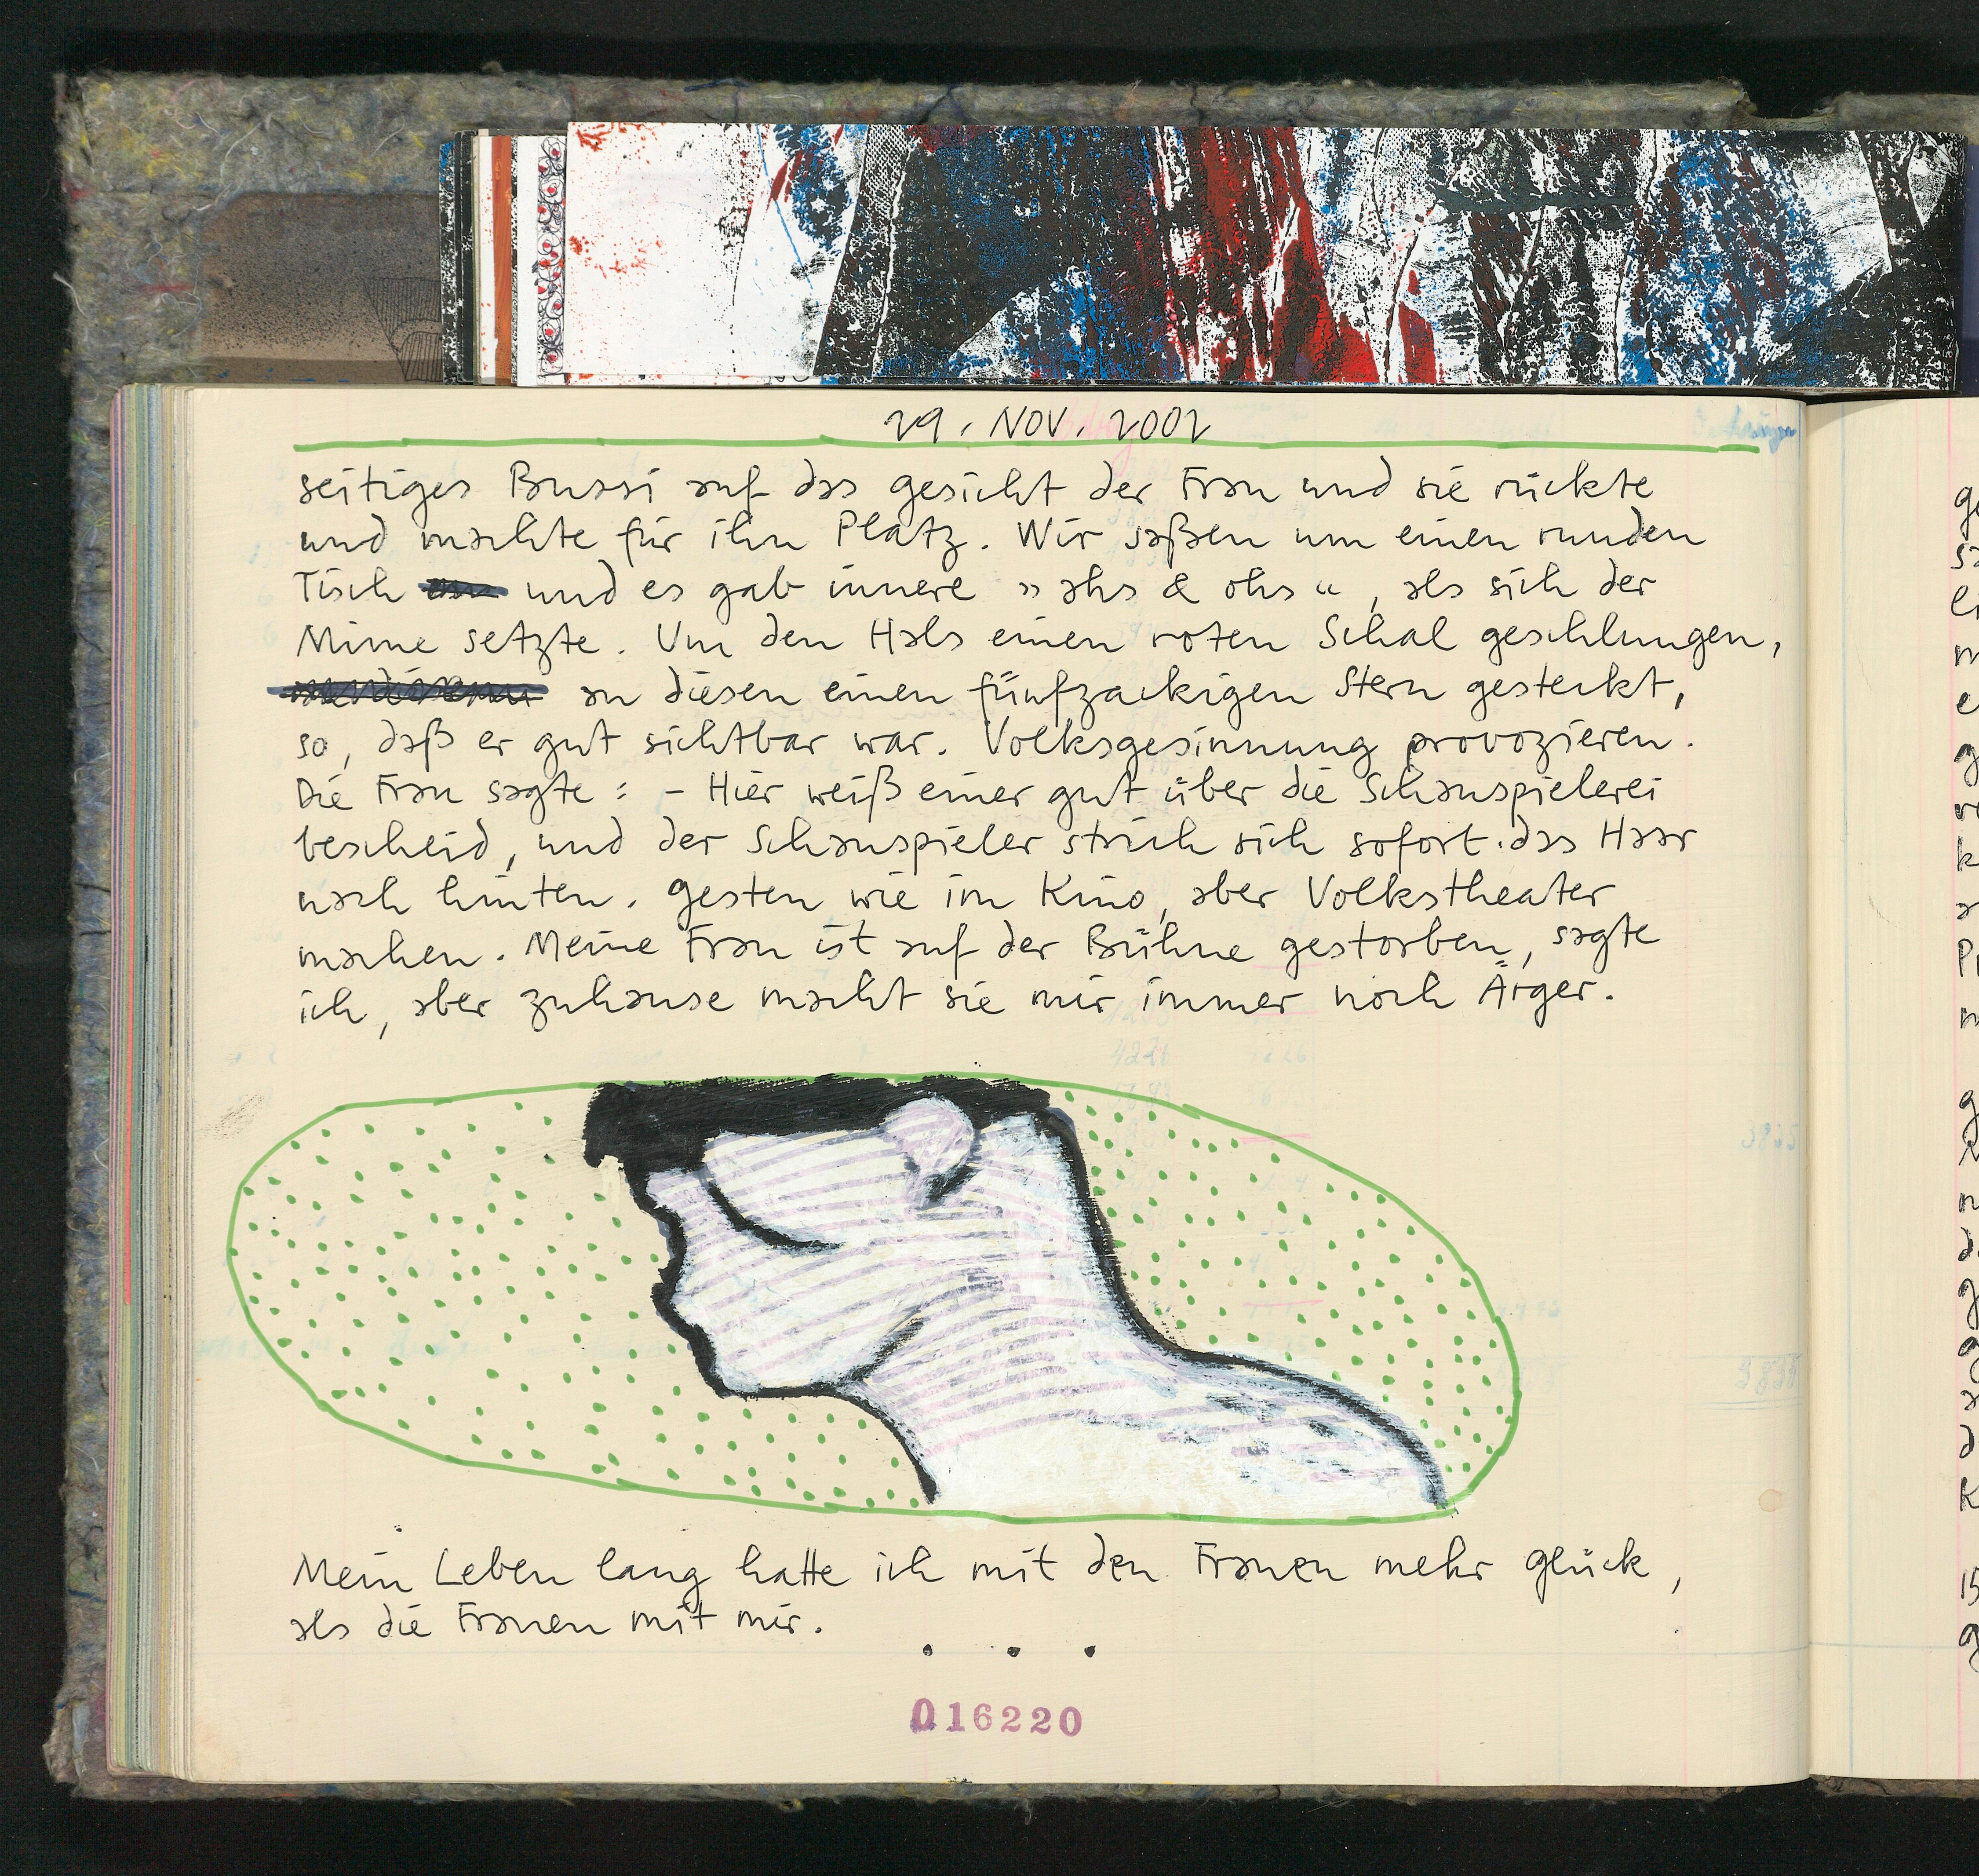 29. NOV. 2002
seitiges Bussi auf das gesicht der Frau und sie rückte
und machte für ihn Platz. Wir saßen um einen runden
Tisch und es gab innere »ahs & ohs«, als sich der
Mime setzte. Um den Hals einen roten Schal geschlungen,
an diesen einen fünfzackigen Stern gesteckt,
so, daß er gut sichtbar war. Volksgesinnung provozieren.
Die Frau sagte: - Hier weiß einer gut über die Schauspielerei
bescheid, und der Schauspieler strich sich sofort das Haar
nach hinten. gesten wie im Kino, aber Volkstheater
machen. Meine Frau ist auf der Bühne gestorben, sagte
ich, aber zuhause macht sie mir immer noch Ärger.
Mein Leben lang hatte ich mit den Frauen mehr glück,
als die Frauen mit mir.
. . .
016220